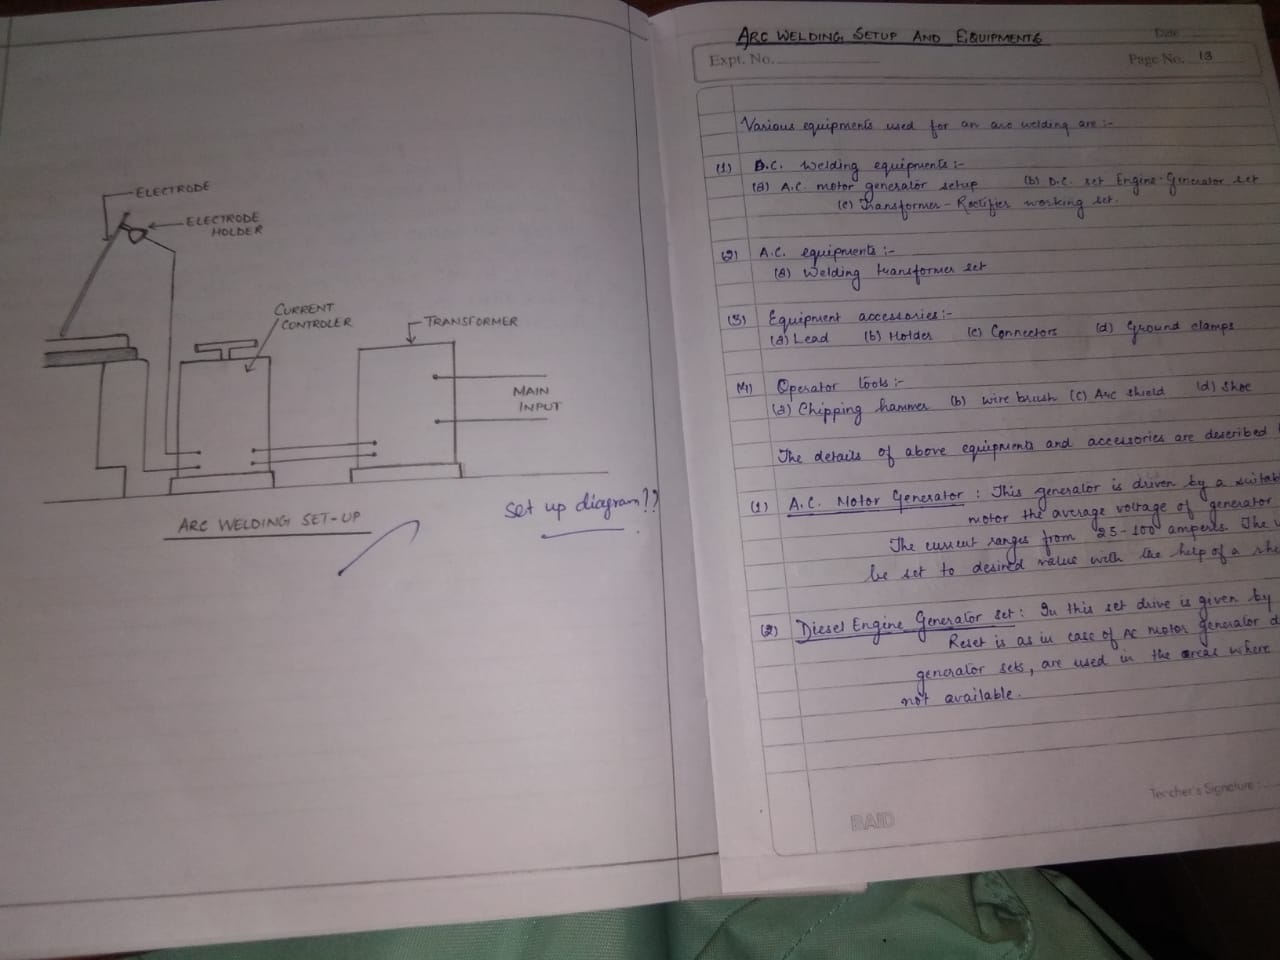 ELECTRODE
ELECTRODE
HOLDER
CURRENT
CONTROLER
TRANSFORMER
MAIN
INPUT
ARC WELDING SET-UP
Set up diagram??
ARC WELDING SETUP AND EQUIPMENTS
Date
Expt. No.
Page No. 13
Various equipments used for an arc welding are :-
(1) D.C. Welding equipments :-
(a) A.C. motor generator setup (b) D.C. set Engine-Generator set
(c) Transformer - Rectifier working set.
(2) A.C. equipments :-
(a) Welding transformer set
(3) Equipment accessories :-
(a) Lead (b) Holder (c) Connectors (d) Ground clamps
(4) Operator tools :-
(a) Chipping hammer (b) wire brush (c) Arc shield (d) Shoe
The details of above equipments and accessories are described
(1) A.C. Motor Generator : This generator is driven by a
motor the average voltage of generator
The current ranges from 25-100 amperes. The
be set to desired value with the help of a
(2) Diesel Engine Generator set : In this set drive is given by
Reset is as in case of AC motor generator
generator sets, are used in the areas where
not available.
Teacher's Signature :
BAID